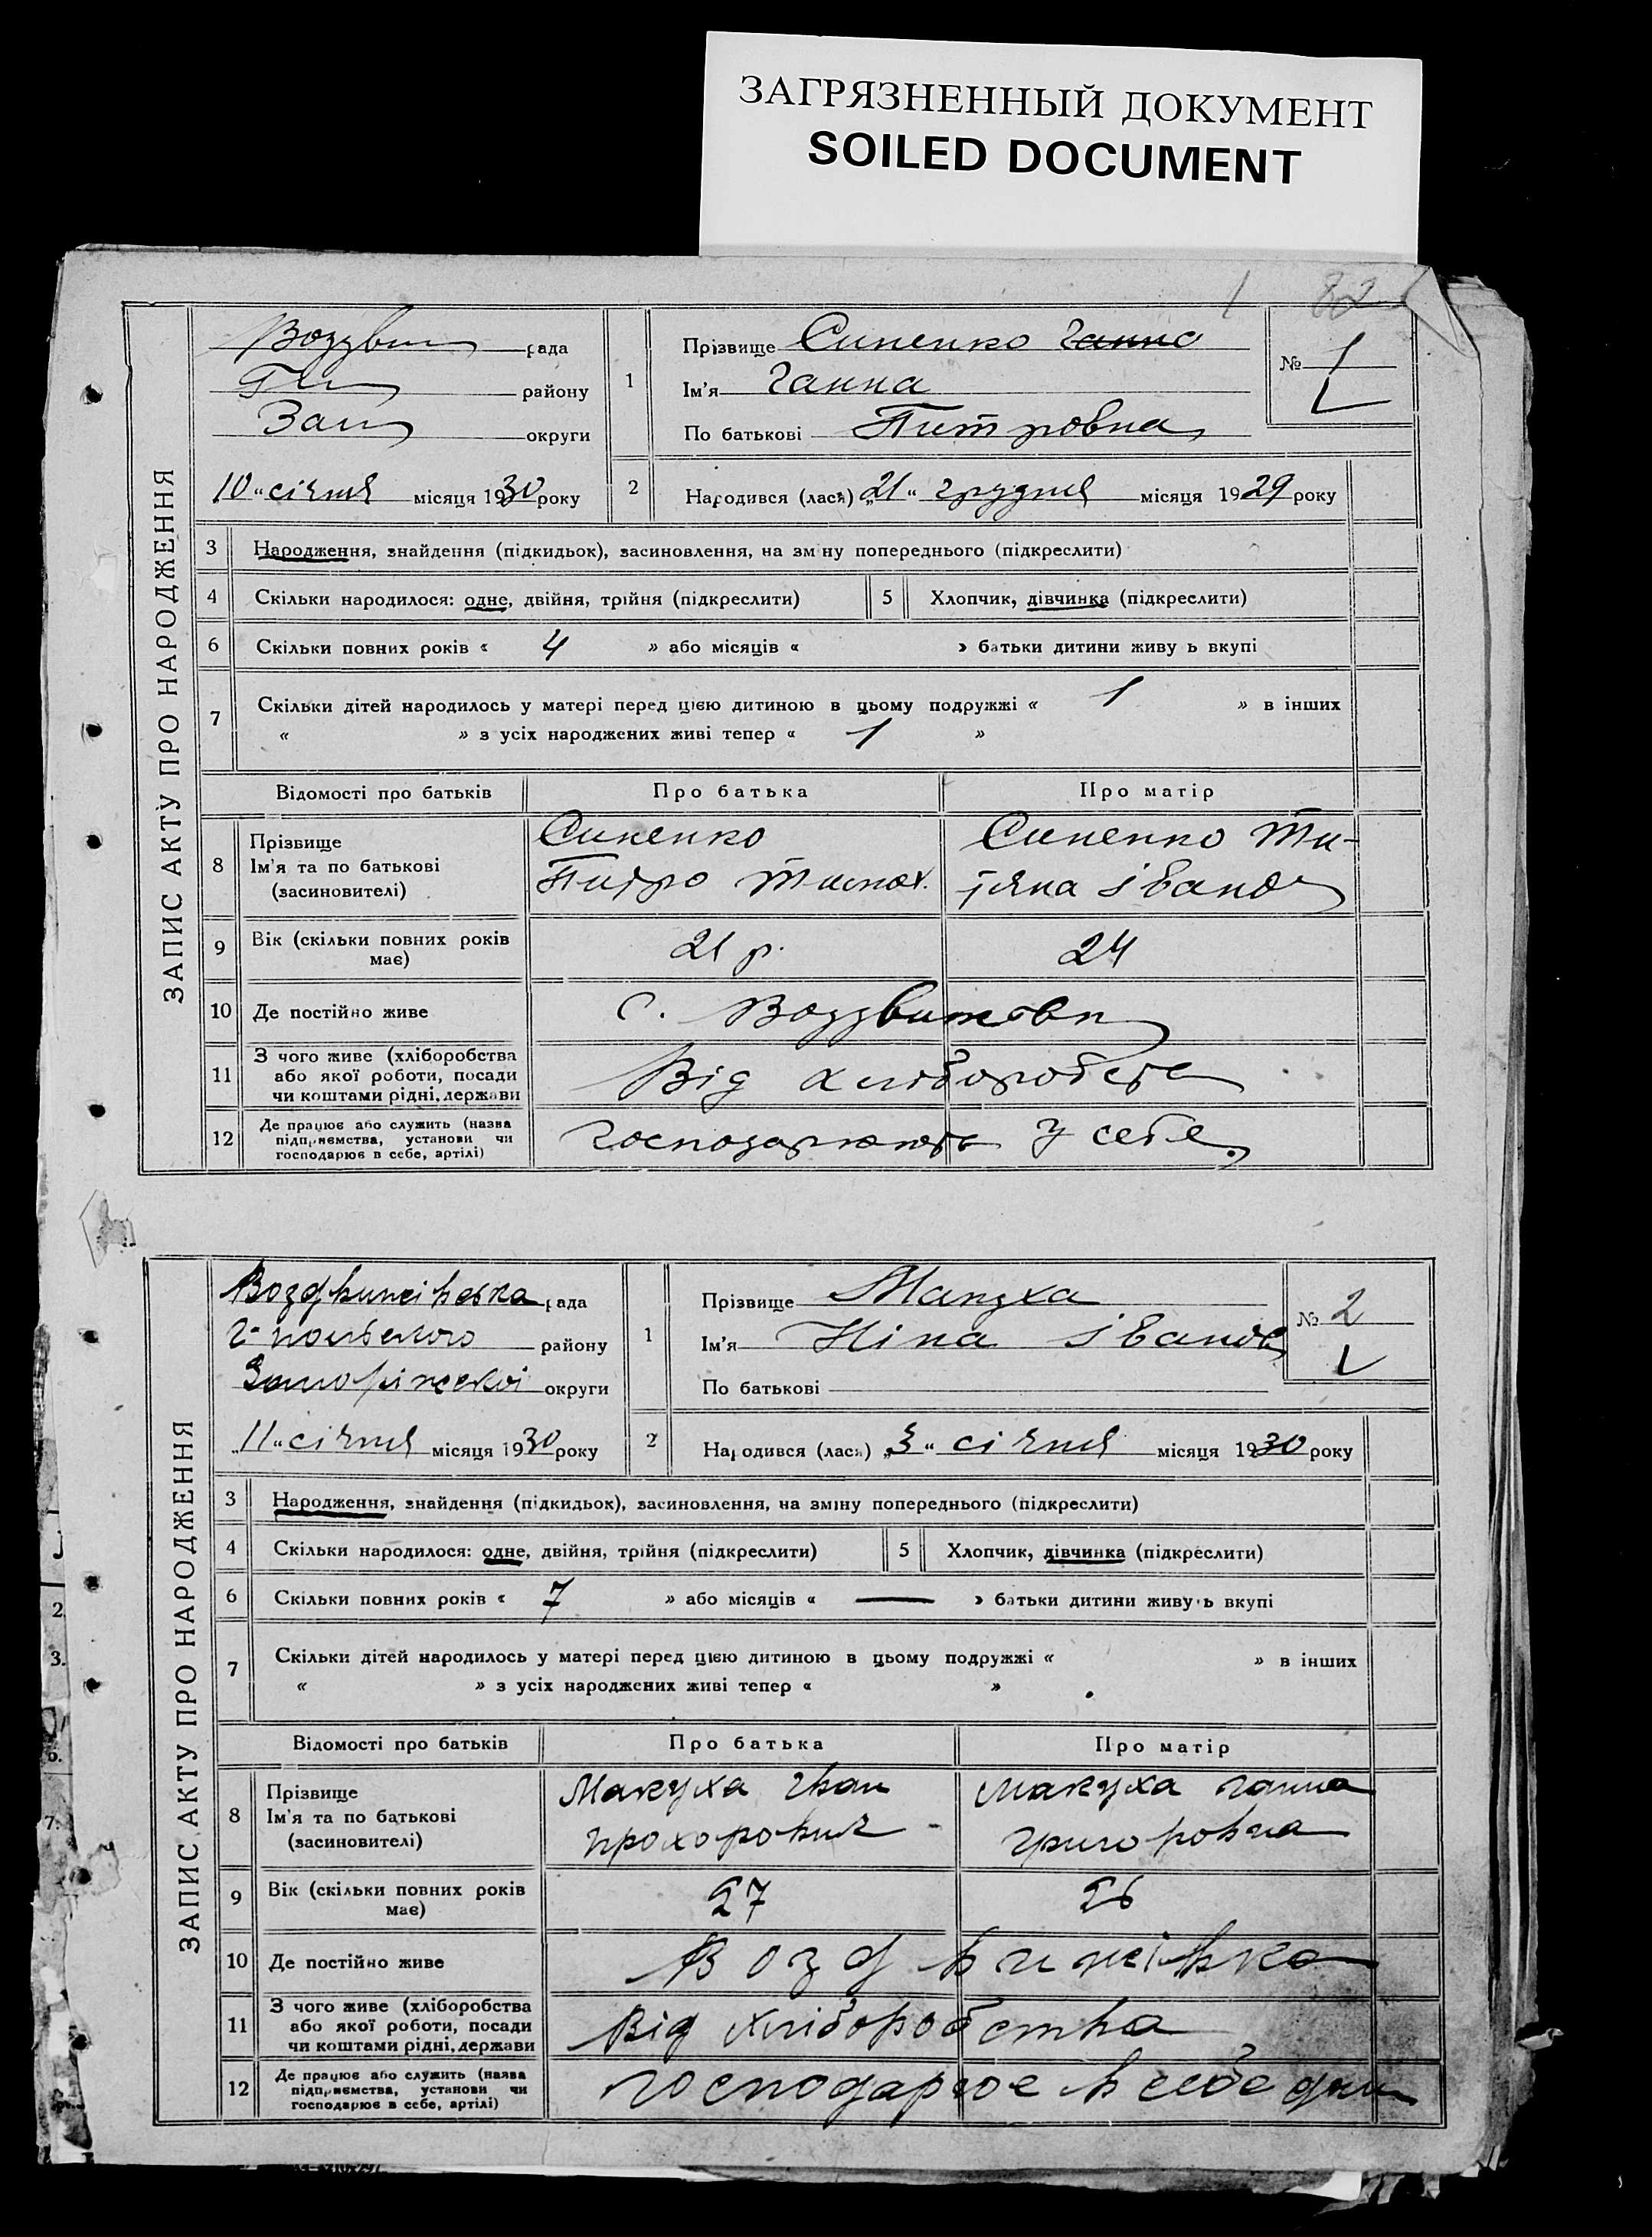 ЗАГРЯЗНЕННЫЙ ДОКУМЕНТ
SOILED DOCUMENT
1 82
ЗАПИС АКТУ ПРО НАРОДЖЕННЯ
рада
району
Зап округи
10 " січня місяця 1930 року
1
Прізвище Синенко Ганна
Ім'я Ганна
По батькові Питровна
№ 1
2 Народився (лася) „21" грудня місяця 1929 року
3 Народження, знайдення (підкидьок), засиновлення, на зміну попереднього (підкреслити)
4 Скільки народилося: одне, двійня, трійня (підкреслити) 5 Хлопчик, дівчинка (підкреслити)
6 Скільки повних років « 4 » або місяців « » батьки дитини живуть вкупі
7 Скільки дітей народилось у матері перед цією дитиною в цьому подружжі « 1 » в інших
« » з усіх народжених живі тепер « 1 »
Відомості про батьків Про батька Про матір
8 Прізвище
Ім'я та по батькові
(засиновителі)
Синенко
Питро Тимох.
Синенко Ти-
тяна Іванов
9 Вік (скільки повних років
має)
21 р. 24
10 Де постійно живе с. Воздвижовк
11 З чого живе (хліборобства
або якої роботи, посади
чи коштами рідні, держави
Від хліборобств
12 Де працює або служить (назва
підприємства, установи чи
господарює в себе, артілі)
господарюють у себе.
ЗАПИС АКТУ ПРО НАРОДЖЕННЯ
Воздвижівська рада
району
Запоріжської округи
„11" січня місяця 1930 року
1
Прізвище Макуха
Ім'я Ніна Іванов
По батькові
№ 2
2 Народився (лася) „3" січня місяця 1930 року
3 Народження, знайдення (підкидьок), засиновлення, на зміну попереднього (підкреслити)
4 Скільки народилося: одне, двійня, трійня (підкреслити) 5 Хлопчик, дівчинка (підкреслити)
6 Скільки повних років « 7 » або місяців « — » батьки дитини живуть вкупі
7 Скільки дітей народилось у матері перед цією дитиною в цьому подружжі « » в інших
« » з усіх народжених живі тепер « »
Відомості про батьків Про батька Про матір
8 Прізвище
Ім'я та по батькові
(засиновителі)
Макуха Иван
Прохорович
Макуха Ганна
Григоровна
9 Вік (скільки повних років
має)
27 26
10 Де постійно живе Воздвижівка
11 З чого живе (хліборобства
або якої роботи, посади
чи коштами рідні, держави
Від хліборобства
12 Де працює або служить (назва
підприємства, установи чи
господарює в себе, артілі)
господарює в себе дома
2
3.
7.